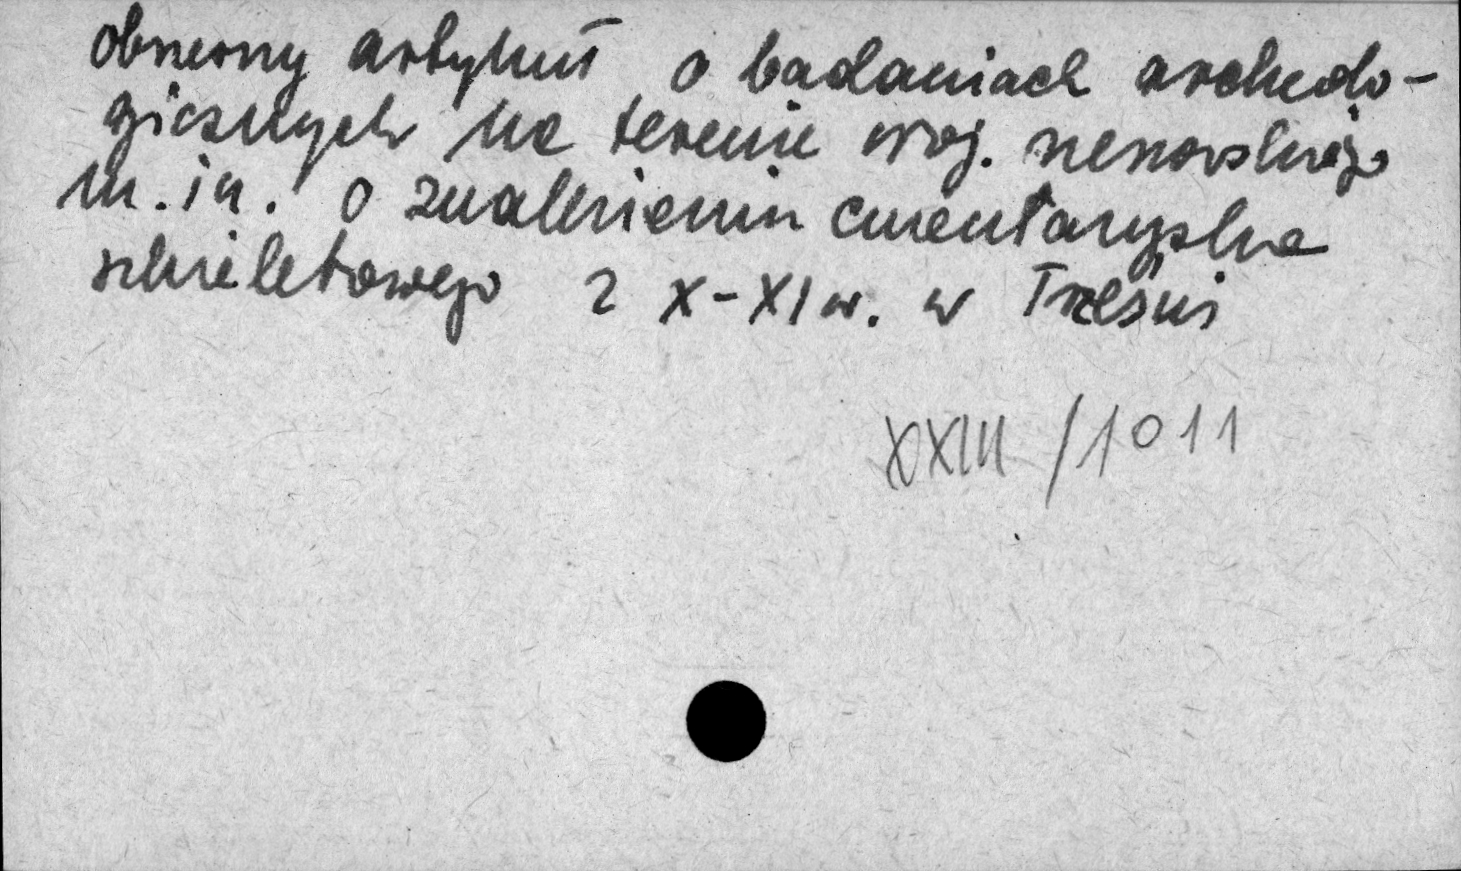 obszerny artykuł o badaniach archeolo-
gicznych na terenie woj. rzeszowskiego
m.in. o znalezieniu cmentarzyska
szkieletowego z X-XI w. w Trześni
XXIII/1011